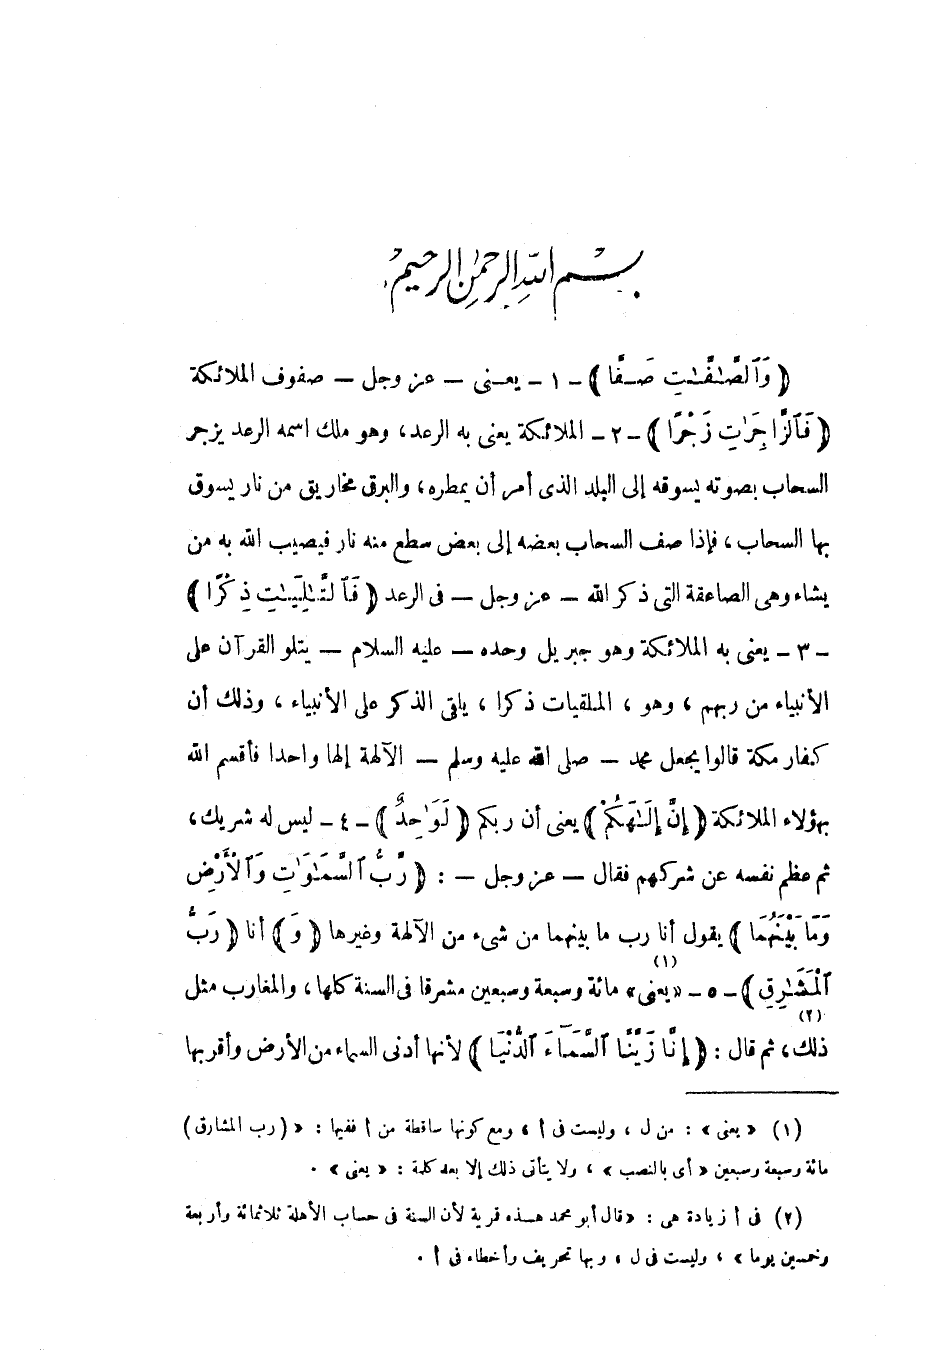 بسم الله الرحمن الرحيم
﴿ وَٱلصَّـٰٓفَّـٰتِ صَـفًّا ﴾ - ١ - يعـنى - عز وجل - صفوف الملائكة
﴿ فَٱلزَّٰجِرَٰتِ زَجْرًا ﴾ - ٢ - الملائكة يعنى به الرعد، وهو ملك اسمه الرعد يزجر
السحاب بصوته يسوقه إلى البلد الذى أمر أن يمطره، والبرق مخاريق من نار يسوق
بها السحاب ، فإذا صف السحاب بعضه إلى بعض سطع منه نار فيصيب الله به من
يشاء وهى الصاعقة التى ذكر الله - عز وجل - فى الرعد ﴿ فَٱلتَّـٰلِيَـٰتِ ذِكْرًا ﴾
- ٣ - يعنى به الملائكة وهو جبريل وحده - عليه السلام - يتلو القرآن على
الأنبياء من ربهم ، وهو ، الملقيات ذكرا ، يلقى الذكر على الأنبياء ، وذلك أن
كفار مكة قالوا يجعل محمد - صلى الله عليه وسلم - الآلهة إلها واحدا فأقسم الله
بهؤلاء الملائكة ﴿ إِنَّ إِلَـٰهَكُمْ ﴾ يعنى أن ربكم ﴿ لَوَٰحِدٌ ﴾ - ٤ - ليس له شريك،
ثم عظم نفسه عن شركهم فقال - عز وجل - : ﴿ رَّبُّ ٱلسَّمَـٰوَٰتِ وَٱلْأَرْضِ
وَمَا بَيْنَهُمَا ﴾ يقول أنا رب ما بينهما من شىء من الآلهة وغيرها ﴿ وَ ﴾ أنا ﴿ رَبُّ
ٱلْمَشَـٰرِقِ ﴾ - ٥ - «يعنى» (١) مائة وسبعة وسبعين مشرقا فى السنة كلها، والمغارب مثل
ذلك، (٢) ثم قال : ﴿ إِنَّا زَيَّنَّا ٱلسَّمَآءَ ٱلدُّنْيَا ﴾ لأنها أدنى السماء من الأرض وأقربها
(١) « يعنى » : من ل ، وليست فى أ ، ومع كونها ساقطة من أ ففيها : « (رب المشارق)
مائة وسبعة وسبعين « أى بالنصب » ، ولا يتأتى ذلك إلا بعد كلمة : « يعنى » .
(٢) فى أ زيادة هى : «قال أبو محمد هـذه قرية لأن السنة فى حساب الأهلة ثلاثمائة وأربعة
وخمسين يوما » ، وليست فى ل ، وبها تحريف وأخطاء فى أ .